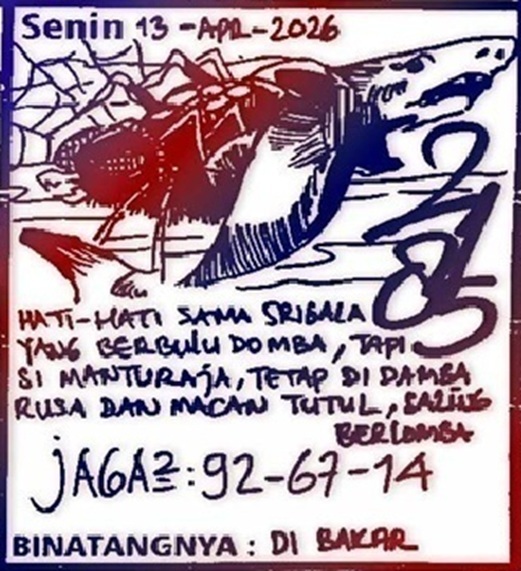 Senin 13-APR-2026
HATI-HATI SAMA SRIGALA
YANG BERBULU DOMBA, TAPI
SI MANTURAJA, TETAP DI DAMBA
RUSA DAN MACAN TUTUL, SALING
BERLOMBA
JAGA2: 92-67-14
BINATANGNYA : DI BAKAR